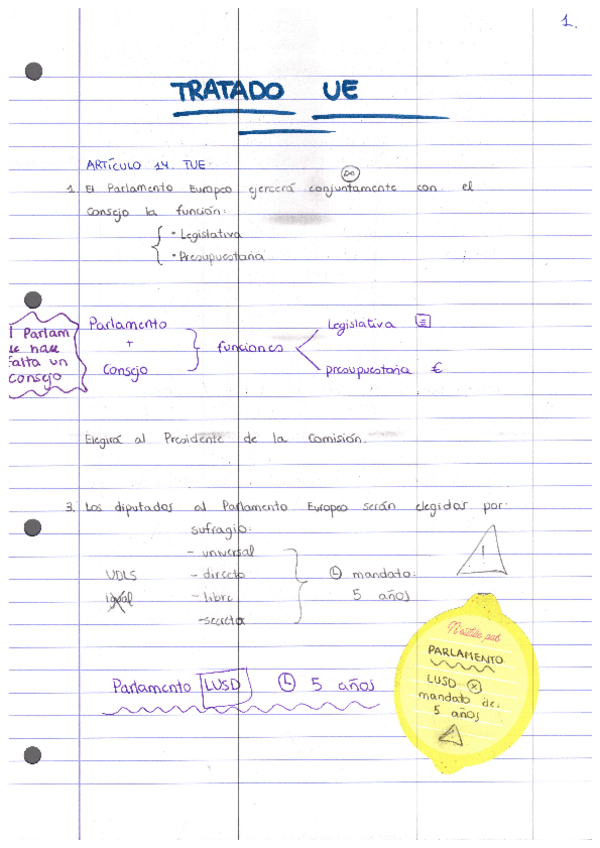 1.
TRATADO UE
ARTÍCULO 14. TUE.
1. El Parlamento Europeo ejercerá conjuntamente con el
Consejo la función:
· Legislativa
· Presupuestaria
Parlam
se hace
falta un
consejo
Parlamento
+
Consejo
funciones
Legislativa
presupuestaria €
Elegirá al Presidente de la Comisión.
3. Los diputados al Parlamento Europeo serán elegidos por:
sufragio:
- universal
- directo
- libre
- secreto
UDLS
igual
mandato:
5 años
!
Parlamento LUSD 5 años
PARLAMENTO
LUSD
mandato de:
5 años